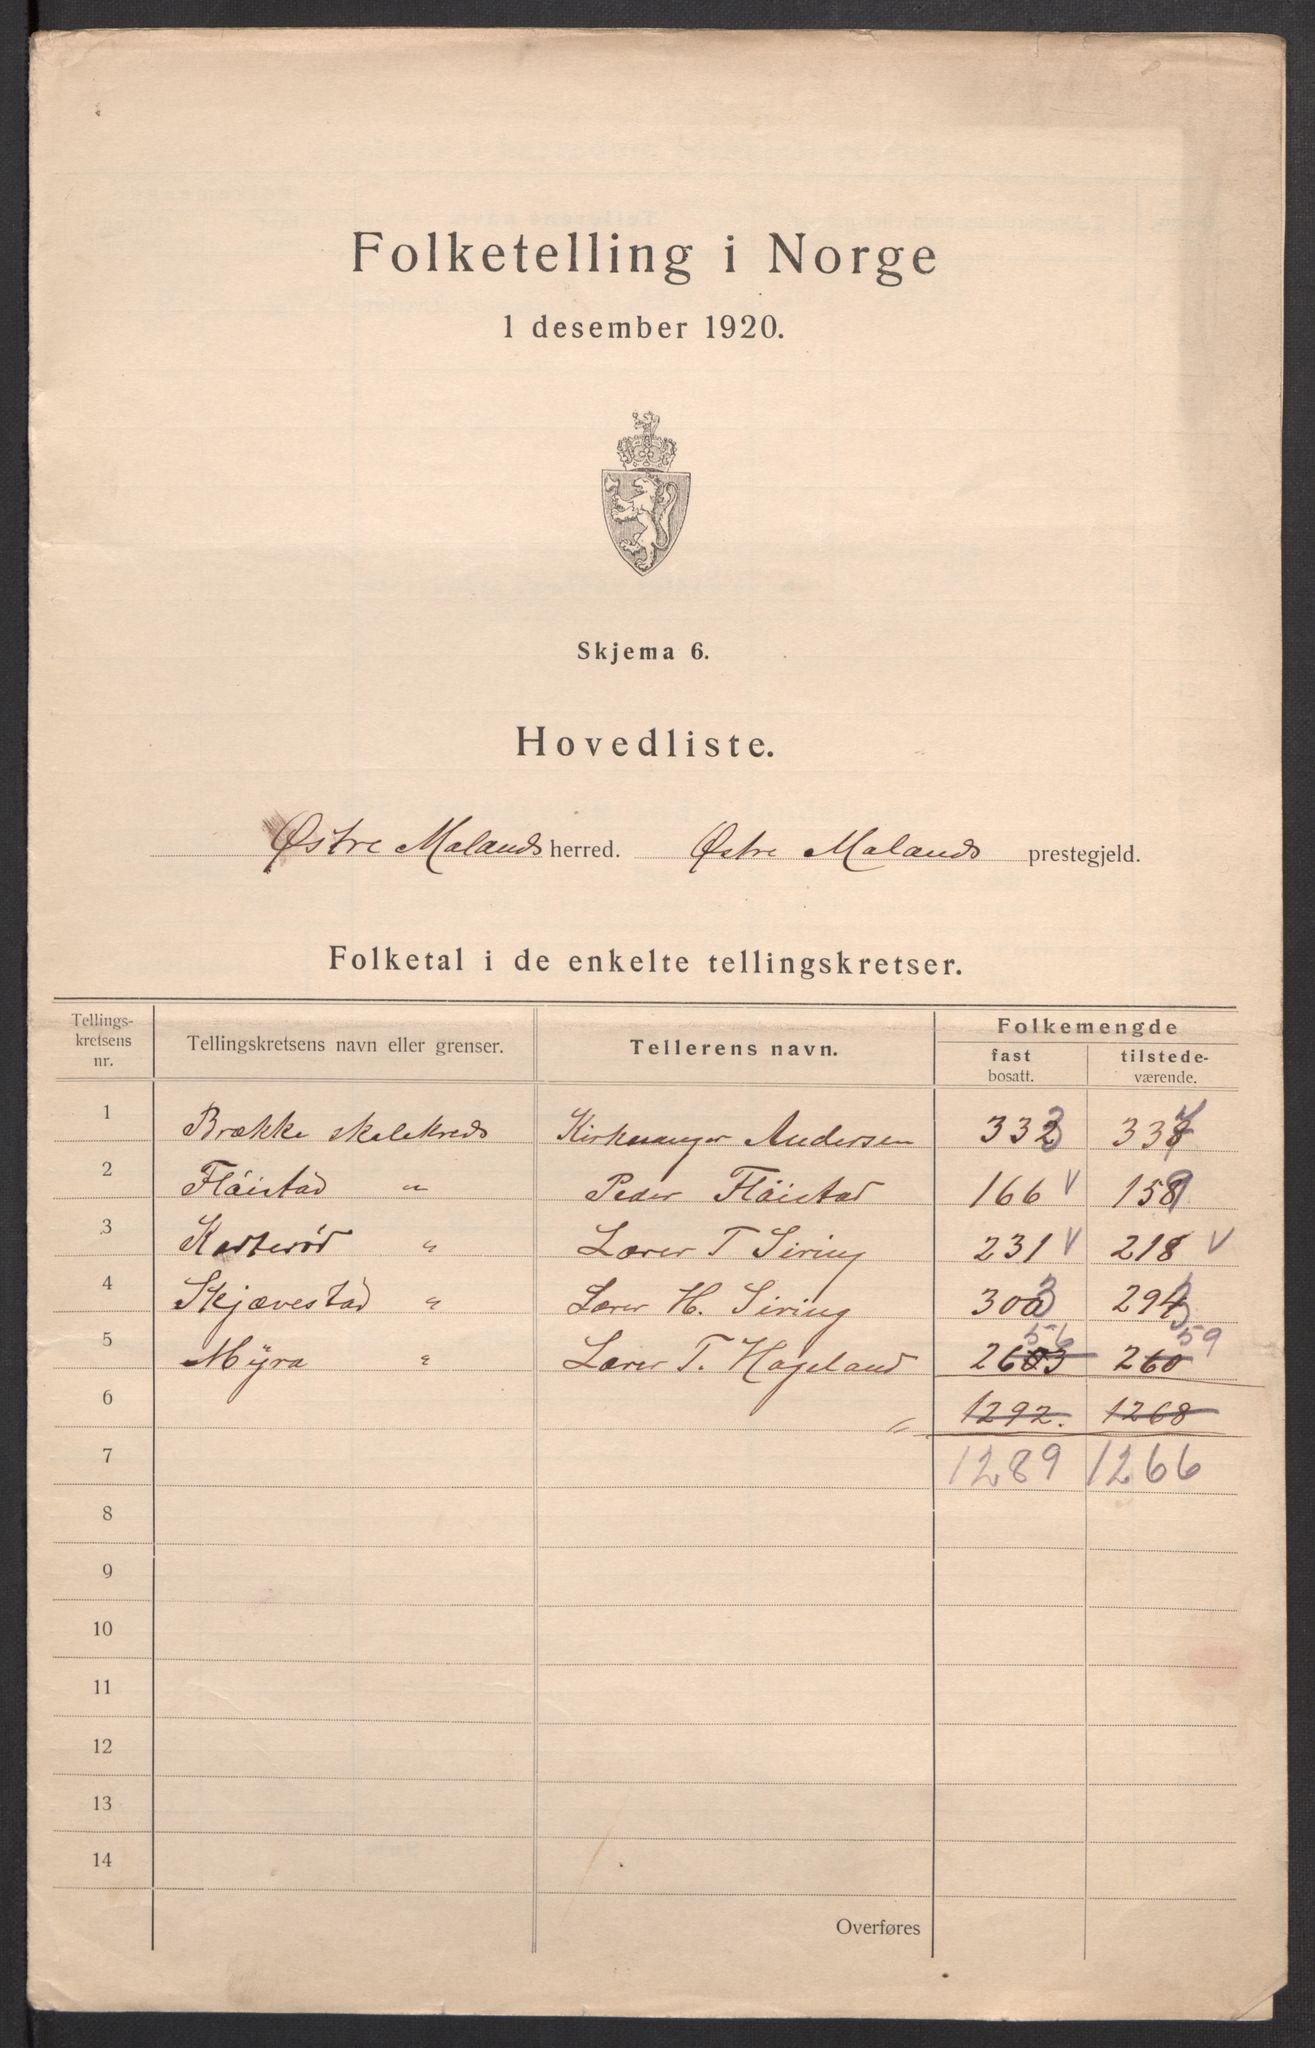 Folketelling i Norge
1 desember 1920.
Skjema 6.
Hovedliste.
Østre Molands herred. Østre Molands prestegjeld.
Folketal i de enkelte tellingskretser.
Tellings-kretsens nr. Tellingskretsens navn eller grenser. Tellerens navn. Folkemengde fast bosatt. tilstede-værende.
1 Brække skolekreds Kirkesanger Andersen 333 337
2 Fløistad " Peder Fløistad 166 V 159
3 " Lærer T Siring 231 V 218 V
4 Skjævestad " Lærer H. Siring 303 293
56 59
5 Myra " Lærer T. Hageland 260
6 " 1292. 1268
7 1289 1266
8
9
10
11
12
13
14
Overføres